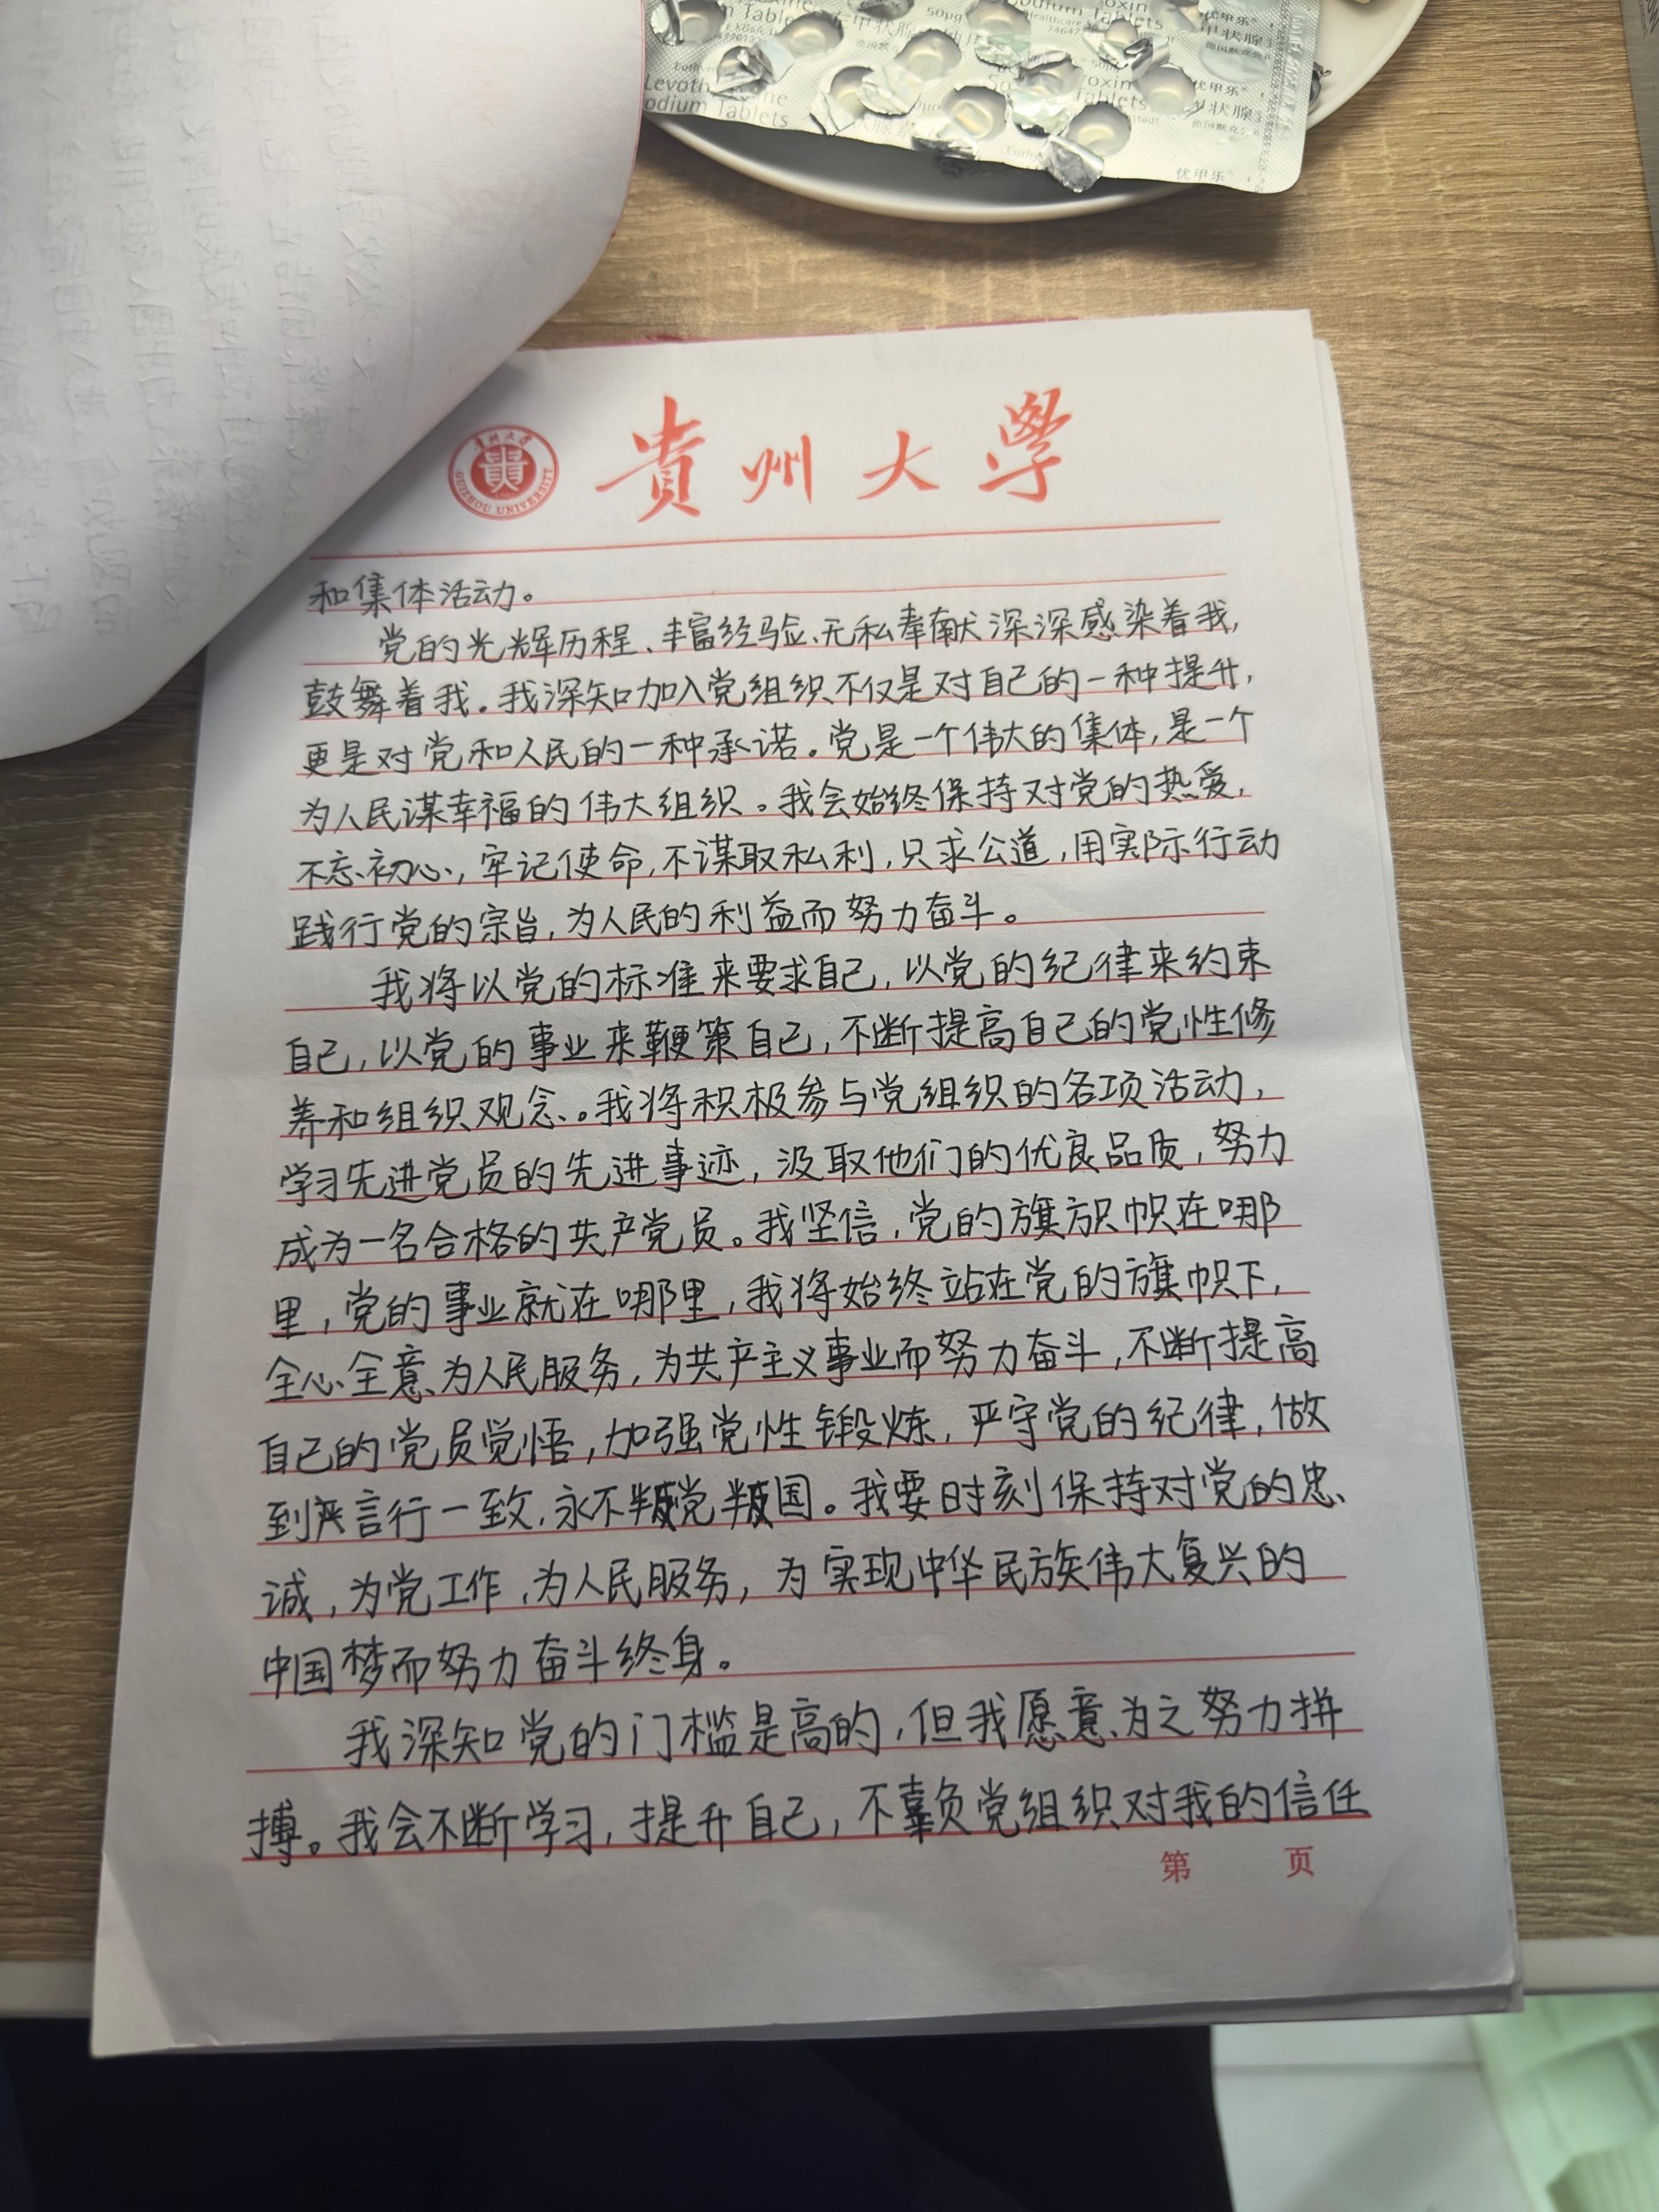 Levoth
odium Tablets
50μg
Tablets
优甲乐
甲状腺
优甲乐
状腺
优甲乐
貴州大學
GUIZHOU UNIVERSITY
貴州大學
和集体活动。
党的光辉历程、丰富经验、无私奉献深深感染着我,
鼓舞着我。我深知加入党组织不仅是对自己的一种提升,
更是对党和人民的一种承诺。党是一个伟大的集体,是一个
为人民谋幸福的伟大组织。我会始终保持对党的热爱,
不忘初心,牢记使命,不谋取私利,只求公道,用实际行动
践行党的宗旨,为人民的利益而努力奋斗。
我将以党的标准来要求自己,以党的纪律来约束
自己,以党的事业来鞭策自己,不断提高自己的党性修
养和组织观念。我将积极参与党组织的各项活动,
学习先进党员的先进事迹,汲取他们的优良品质,努力
成为一名合格的共产党员。我坚信,党的旗帜帜在哪
里,党的事业就在哪里,我将始终站在党的旗帜下,
全心全意为人民服务,为共产主义事业而努力奋斗,不断提高
自己的党员觉悟,加强党性锻炼,严守党的纪律,做
到严言行一致,永不叛党叛国。我要时刻保持对党的忠
诚,为党工作,为人民服务,为实现中华民族伟大复兴的
中国梦而努力奋斗终身。
我深知党的门槛是高的,但我愿意为之努力拼
搏。我会不断学习,提升自己,不辜负党组织对我的信任
第 页